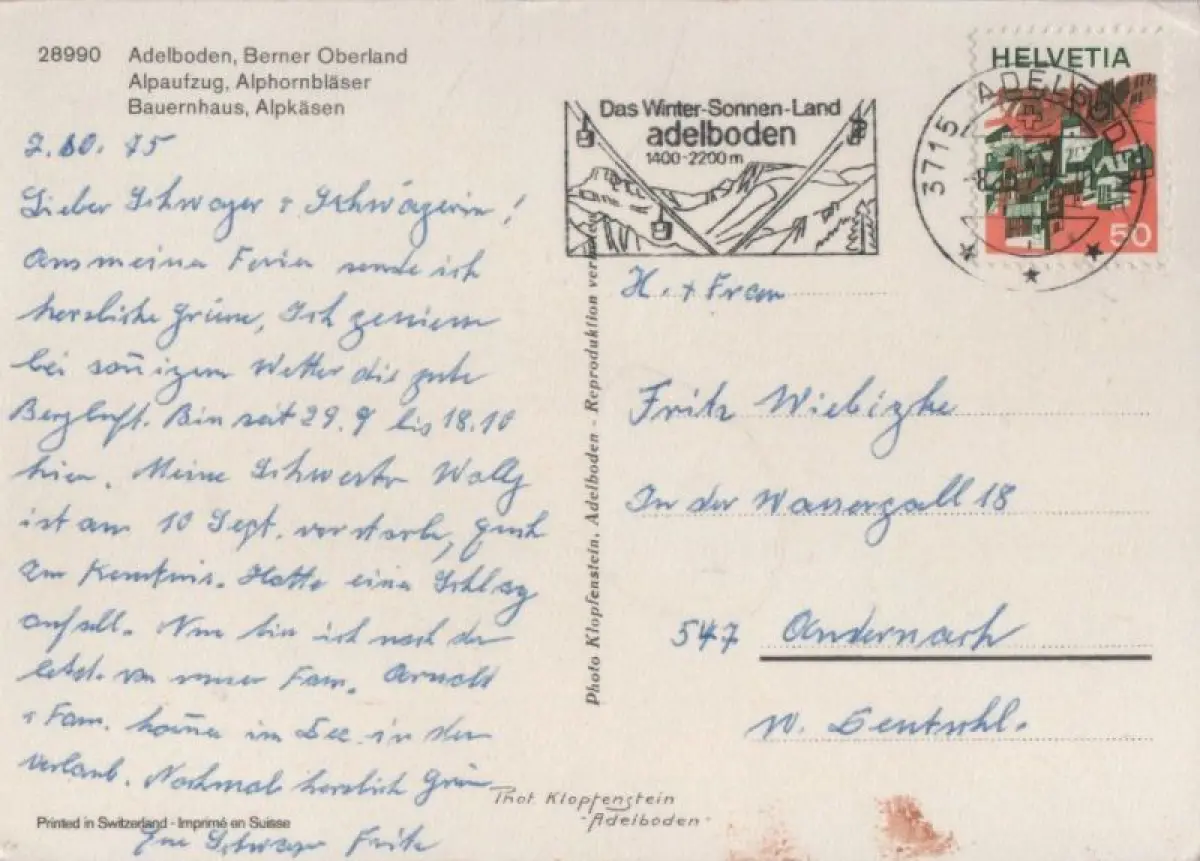 28990 Adelboden, Berner Oberland
Alpaufzug, Alphornbläser
Bauernhaus, Alpkäsen
2.10.75
Lieber Schwager + Schwägerin!
Aus meinen Ferien sende ich
herzliche Grüsse, Ich geniesse
bei soñigem Wetter die gute
Bergluft. Bin seit 29.9 bis 18.10
hier. Meine Schwester Wally
ist am 10 Sept. verstorb,
zur Kenntnis. Hatte eine Schlag
anfall. Nun bin ich noch der
letzte von unser Fam. Arnold
+ Fam. kom̃e im Dez. in den
Urlaub. Nochmals herzlich Grüsse
Euer Schwager Fritz
Printed in Switzerland - Imprimé en Suisse
Photo Klopfenstein, Adelboden - Reproduktion verboten
Phot. Klopfenstein
-Adelboden-
Das Winter-Sonnen-Land
adelboden
1400-2200 m
3715 ADELBODEN
HELVETIA
50
H. + Frau
Fritz Wiebizke
In der Wassergall 18
547 Andernach
W. Deutschl.